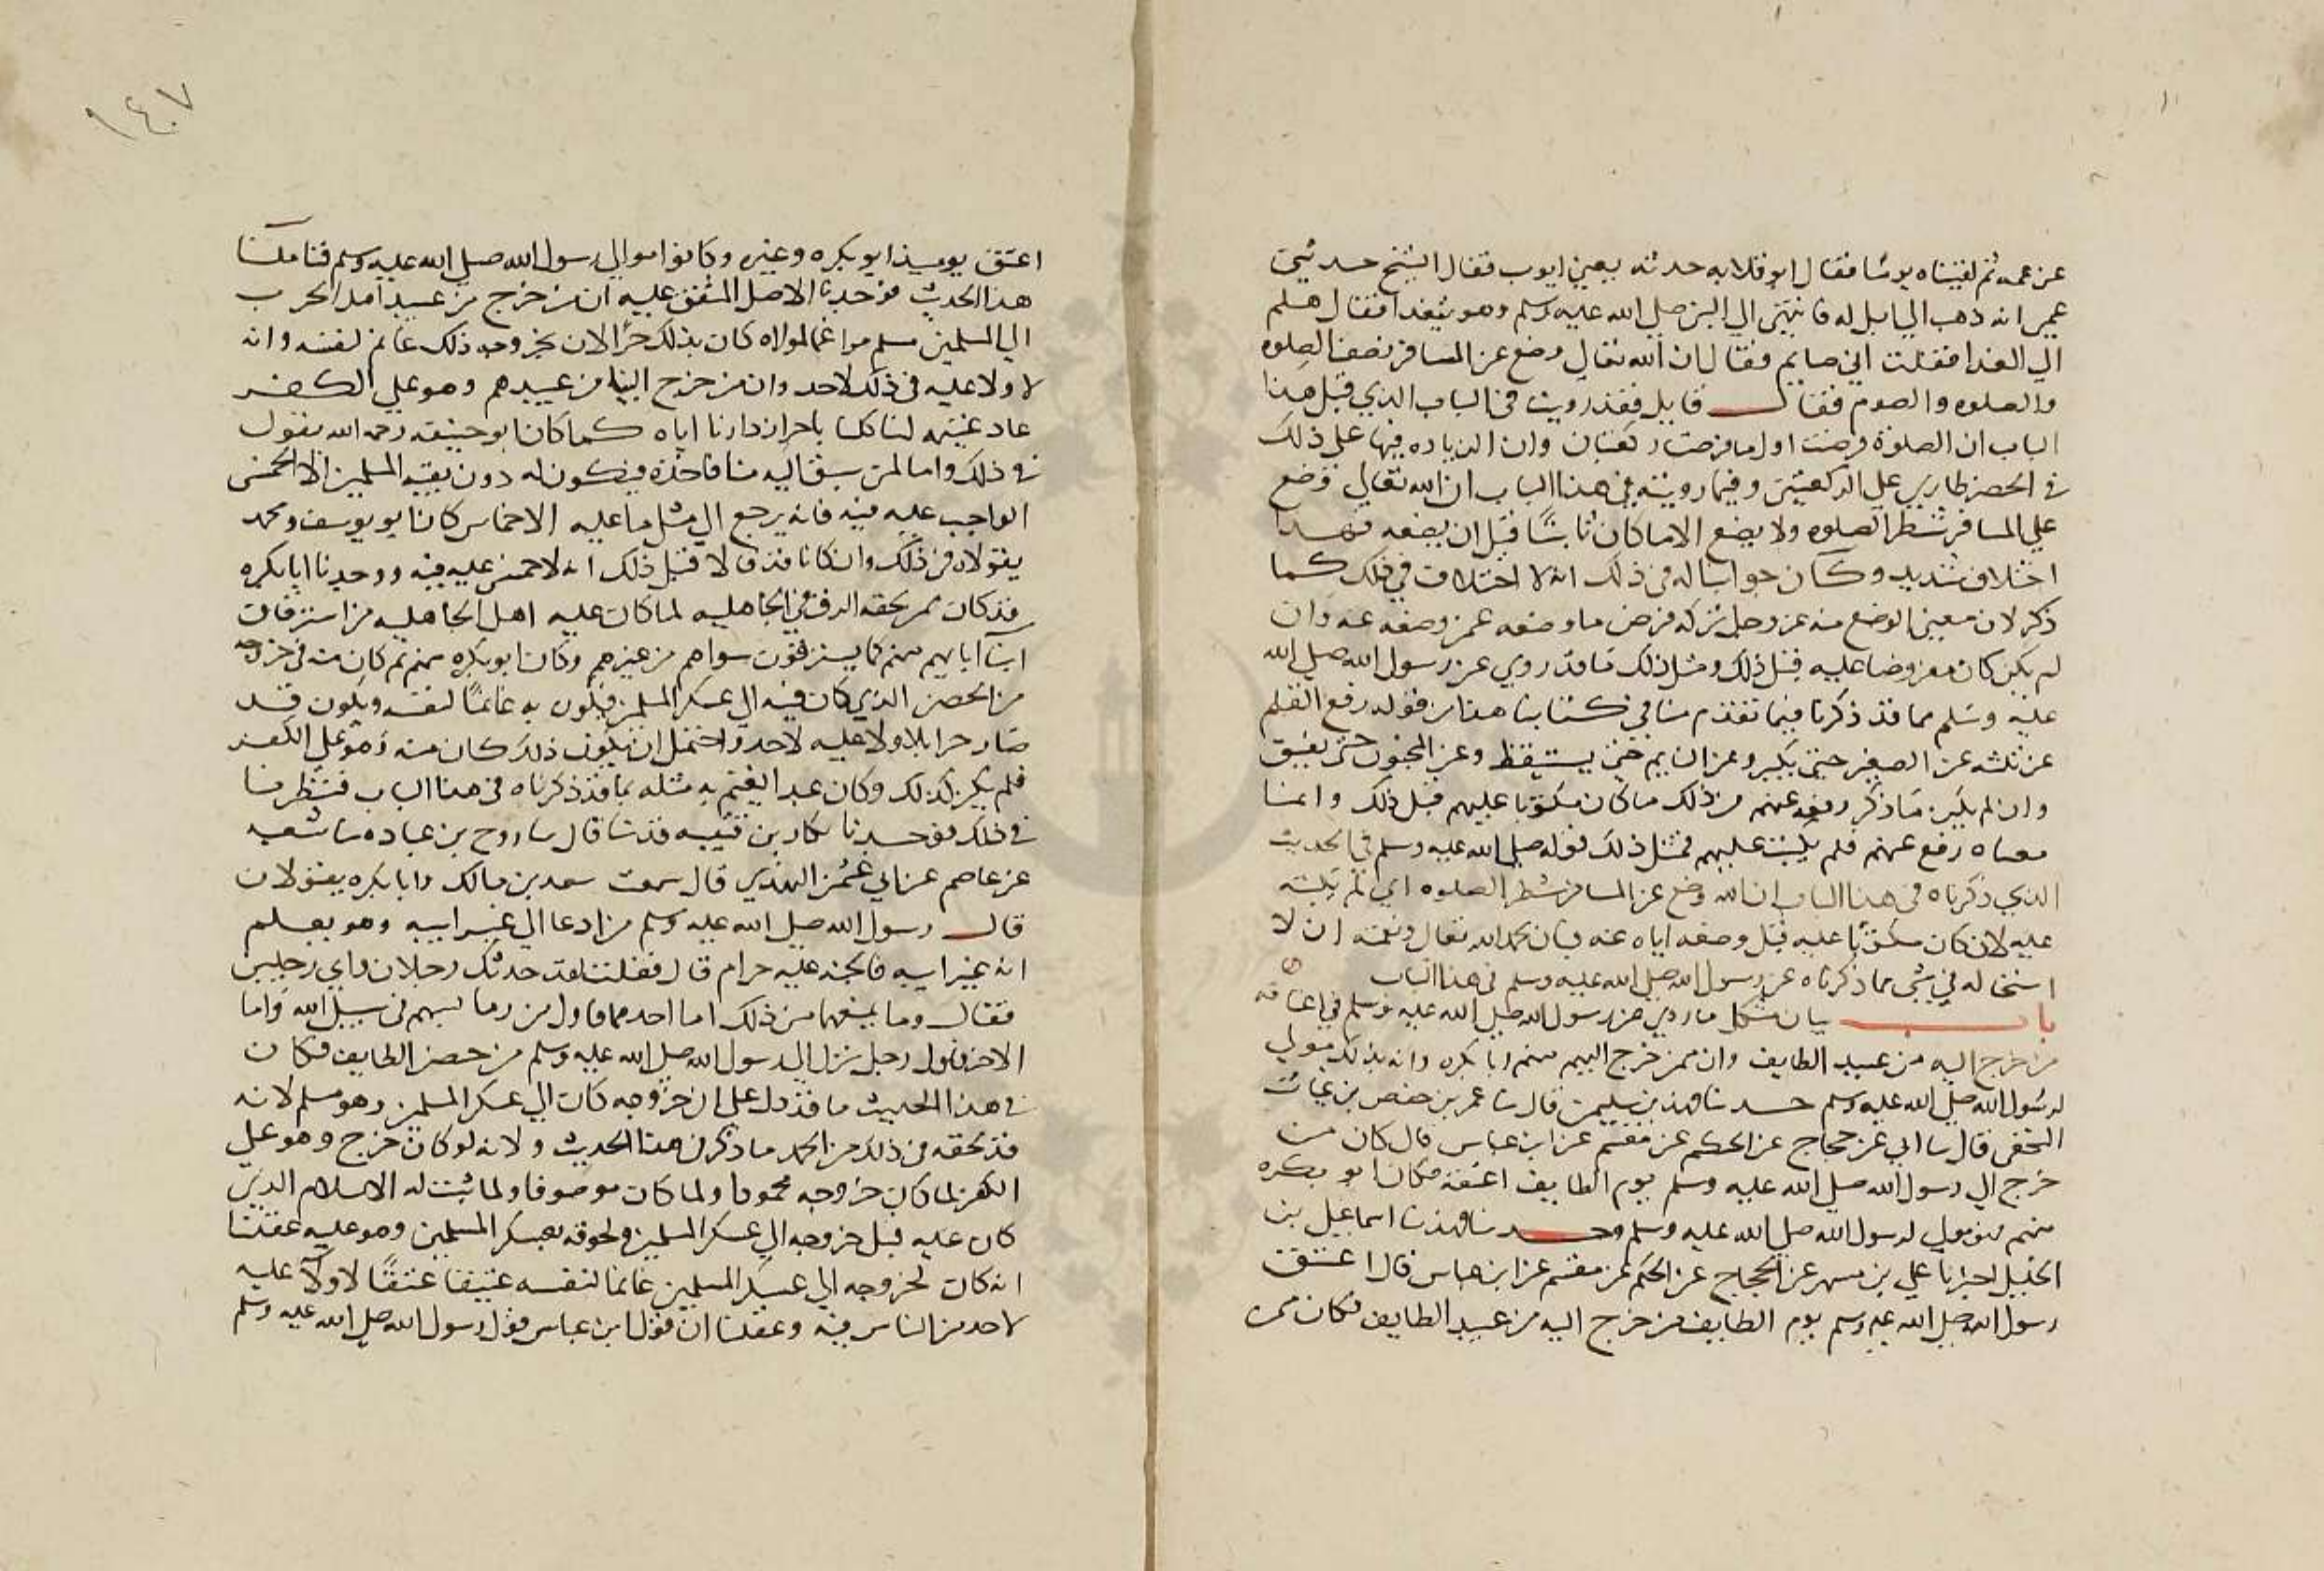 عن عمه ثم لقيناه يوما فقال ابو قلابه حدثه يعني ايوب فقال الشيخ حدثني
عمير انه ذهب الي ابل له فانتهي الي النبي صلي الله عليه وسلم وهو يتغدا فقال هلم
الي الغدا فقلت اني صايم فقال ان الله تعالي وضع عن المسافر نصف الصلوه
والصلوه والصوم فقال قايل فقد رويت في الباب الذي قبل هذا
الباب ان الصلوة فرضت اول ما فرضت ركعتان وان الزياده فيها علي ذلك
في الحضر طاري علي الركعتين وفيما رويته في هذا الباب ان الله تعالي وضع
علي المسافر شطر الصلوه ولا يضع الا ما كان ثابتا قبل ان يضعه فهذا
اختلاف شديد وكان جوابنا له في ذلك انه لا اختلاف في ذلك كما
ذكر لان معني الوضع منه عز وجل تركه فرض ما وضعه عمن وضعه عنه وان
لم يكن كان مفروضا عليه قبل ذلك ومثل ذلك ما قد روي عن رسول الله صلي الله
عليه وسلم مما قد ذكرنا فيما تقدم منا في كتابنا هذا من قوله رفع القلم
عن ثلثه عن الصغير حتي يكبر وعن النايم حتي يستيقظ وعن المجنون حتي يفيق
وان لم يكن ما ذكر رفعه عنهم من ذلك ما كان مكتوبا عليهم قبل ذلك وانما
معناه رفع عنهم فلم يكتب عليهم فمثل ذلك قوله صلي الله عليه وسلم في الحديث
الذي ذكرناه في هذا الباب ان الله وضع عن المسافر شطر الصلوه اي لم يكتبه
عليه لان كان مكتوبا عليه قبل وضعه اياه عنه فبان بحمد الله تعالي ونعمته ان لا
استحاله في شي مما ذكرناه عن رسول الله صلي الله عليه وسلم في هذا الباب
باب بيان مشكل ما روي عن رسول الله صلي الله عليه وسلم في اعتاقه
من خرج اليه من عبيد الطايف وان ممن خرج اليهم منهم ابا بكره وانه بذلك مولي
لرسول الله صلي الله عليه وسلم حدثنا فهد بن سليمن قال ثنا عمر بن حفص بن غياث
النخعي قال ثنا ابي عن حجاج عن الحكم عن مقسم عن ابن عباس قال كان من
خرج الي رسول الله صلي الله عليه وسلم يوم الطايف اعتقه فكان ابو بكره
منهم فهو مولي لرسول الله صلي الله عليه وسلم وحدثنا فهد ثنا اسماعيل بن
الخليل اخبرنا علي بن مسهر عن الحجاج عن الحكم عن مقسم عن ابن عباس قال اعتق
رسول الله صلي الله عليه وسلم يوم الطايف من خرج اليه من عبيد الطايف فكان ممن
١٤٠٧
اعتق يوميذ ابو بكره وغيره وكانوا موالي رسول الله صلي الله عليه وسلم فتاملنا
هذا الحديث فوجدنا الاصل المتفق عليه ان من خرج من عبيد اهل الحرب
الي المسلمين مسلم مراغما لمولاه كان بذلك حرا لان بخروجه ذلك غانم لنفسه وانه
لا ولا عليه في ذلك لاحد وان من خرج الينا من عبيدهم وهو علي الكفر
عاد غنيمه لنا كلنا باحراز دارنا اياه كما كان ابو حنيفه رحمه الله يقول
في ذلك واما لمن سبق اليه منا فاخذه فيكون له دون بقيه المسلمين الا الخمس
الواجب عليه فيه فانه يرجع الي مثل ما عليه الاخماس كان ابو يوسف ومحمد
يقولان في ذلك وان كانا قد قالا قبل ذلك انه لا خمس عليه فيه ووجدنا ابا بكره
قد كان ممن لحقه الرق في الجاهليه لما كان عليه اهل الجاهليه من استرقاق
ابنا ابايهم منهم كما يسترقون سواهم من غيرهم وكان ابو بكره منهم ثم كان منه في خروجه
من الحصن الذي كان فيه الي عسكر المسلمين فيكون به غانما لنفسه ويكون قد
صار حرا بلا ولا عليه لاحد واحتمل ان يكون ذلك كان منه وهو علي الكفر
فلم يكن كذلك وكان عبدا يغتنم به مثله بما قد ذكرناه في هذا الباب فنظرنا
في ذلك فوجدنا بكار بن قتيبه قد ثنا قال ثنا روح بن عباده ثنا شعبه
عن عاصم عن ابي عثمن النهدي قال سمعت سعد بن مالك وابا بكره يقولان
قال رسول الله صلي الله عليه وسلم من ادعا الي غير ابيه وهو يعلم
انه غير ابيه فالجنه عليه حرام قال فقلت لقد حدثك رجلان واي رجلين
فقال وما يمنعهما من ذلك اما احدهما فاول من رما بسهم في سبيل الله واما
الاخر فاول رجل نزل الي رسول الله صلي الله عليه وسلم من حصن الطايف فكان
في هذا الحديث ما قد دل علي ان خروجه كان الي عسكر المسلمين وهو مسلم لانه
قد لحقه في ذلك من الحمد ما ذكر في هذا الحديث ولانه لو كان خرج وهو علي
الكفر لما كان خروجه محمودا ولما كان موصوفا ولما ثبت له الاسلام الذي
كان عليه قبل خروجه الي عسكر المسلمين ولحوقه بعسكر المسلمين وهو عليه عقلنا
انه كان لخروجه الي عسكر المسلمين غانما لنفسه عتيقا عتقا لا ولا عليه
لاحد من الناس فيه وعقلنا ان قول ابن عباس قول رسول الله صلي الله عليه وسلم